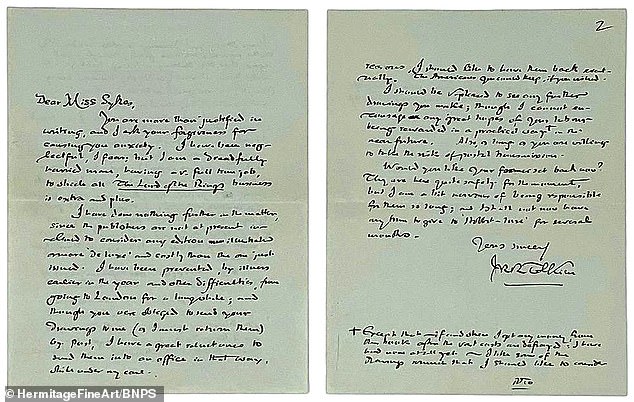 Dear Miss Sykes,
You are more than justified in
writing, and I ask your forgiveness for
causing you anxiety. I have been neg-
lectful, I fear, but I am a dreadfully
harried man, having a v. full time job,
to which all The Lord of the Rings business
is extra and plus.
I have done nothing further in the matter,
since the publishers are not at present in-
clined to consider any edition more illustrated
or more 'de luxe' and costly than the one just
issued. I have been prevented, by illness
earlier in the year and other difficulties, from
going to London for a long while; and
though you were obliged to send your
drawings to me (as I must return them)
by post, I have a great reluctance to
send them into an office in that way,
while under my care.
2
reasons, I should like to have them back event-
ually. The Americans you could keep, if you wished.
I should be v. pleased to see any further
drawings you make; though I cannot en-
courage any great hopes of your labour
being rewarded in a practical way† in the
near future. Also, as long as you are willing
to take the risk of postal transmission.
Would you like your former set back now?
They are here quite safely for the moment,
but I am a bit nervous of being responsible
for them so long; and I shall not now have
any time to give to 'Hobbit-lore' for several
months.
Yours sincerely
J.R.R. Tolkien
† Except that if and when I get any money from
the book after the vast costs are defrayed: I have
had none at all yet – I like some of the
drawings so much that I should like to consider
PTO
©HermitageFineArt/BNPS